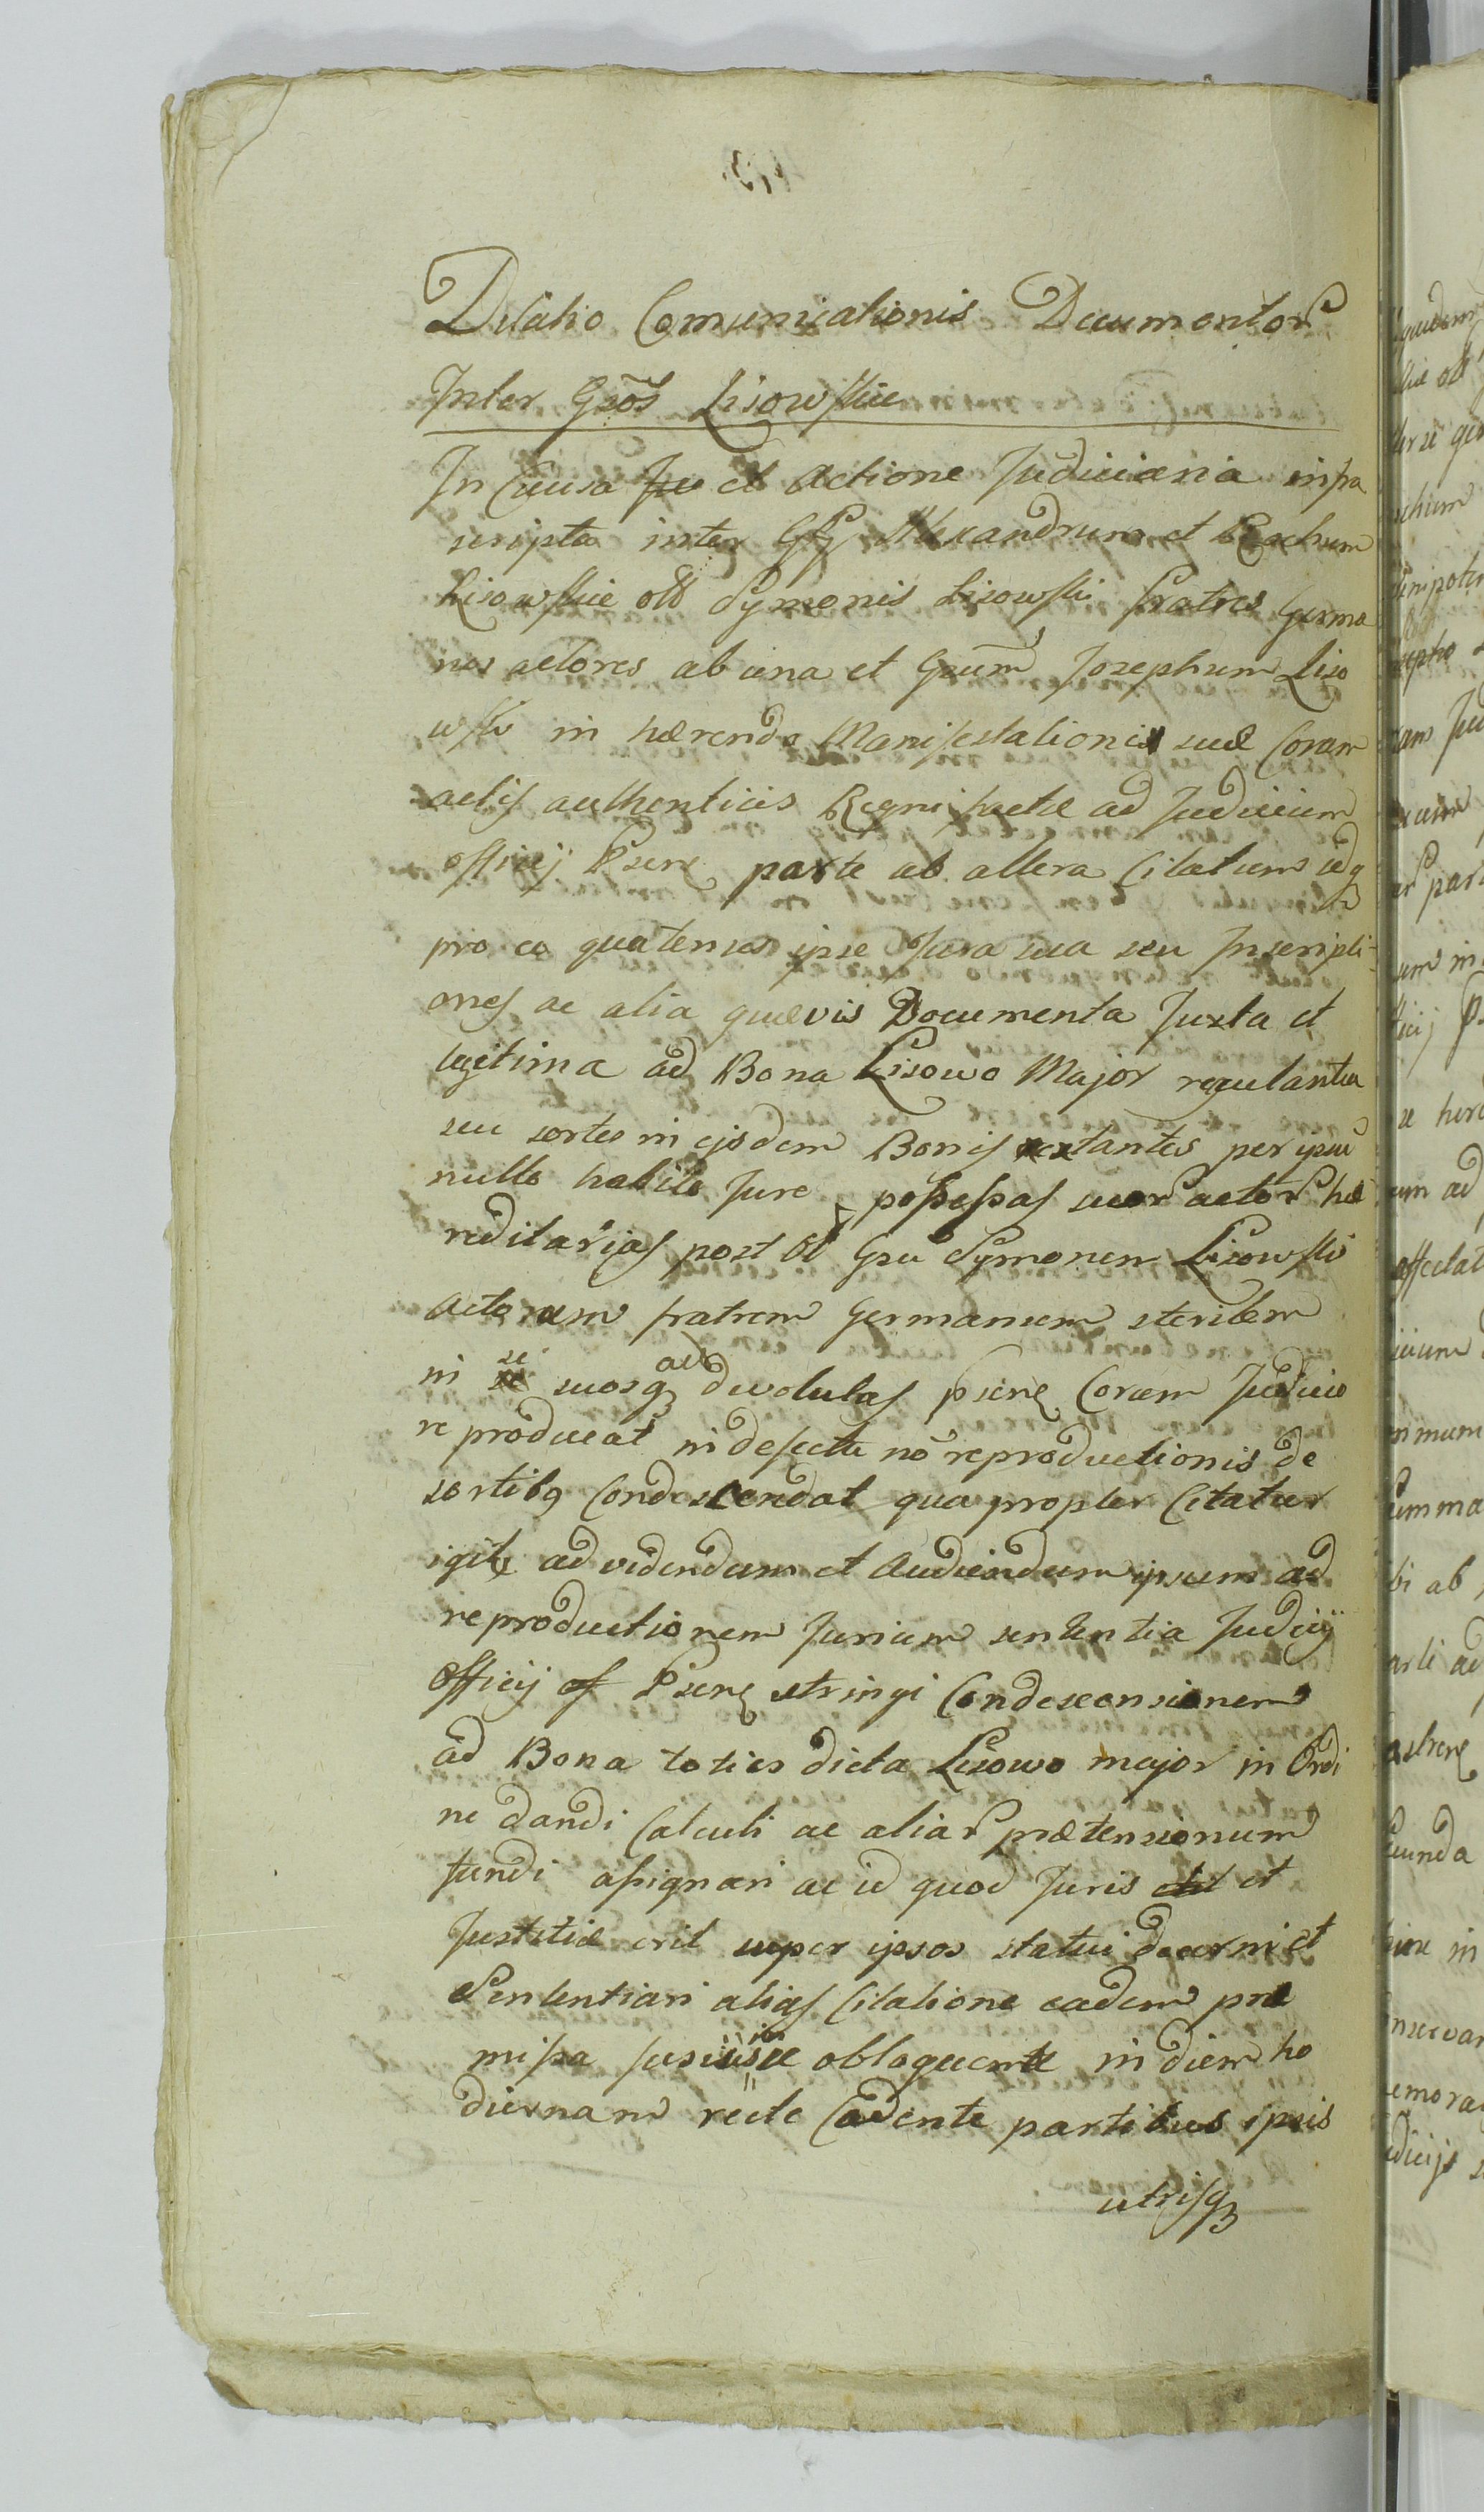 Dilatio Comunicationis Documentor
Inter Gsos Lisowskie
In Causa et Actione Judiciaria infra
scripta inter GG Alexandrum et Rochum
Lisowskie olt Symonis Lisowski fratres Germa
nos actores ab una et Gsum Josephum Liso
wski in hærendo Manifestationis suæ Coram
actis authenticis Regni factæ ad Judicium
officij Psens parte ab altera Citatum idq
pro eo quatenus ipse Jura sua seu Inscripti-
ones ac alia quævis Documenta Juxta et
legitima ad Bona Lisowo Major regulantia
seu sortes in ejsdem Bonis extantes per ipsu
nullo habito Jure possessas suor actor hæ
reditarias post ol Gsu Symonem Lisowski
Actorum fratrem Germanum sterilem
in se suosq ac devolutas psens Coram Judicio
reproducat in defectu no reproductionis de
sortibq Condescendat qua propter Citatur
igitr ad videndum et Audiendum ipsum ad
reproductionem Jurium sententia Judicij
Officij Psens stringi Condescensionem
ad Bona toties dicta Lisowo major in Ordi
ne dandi Calculi ac aliar prætensionum
fundi assignari ac id quod Juris et
Justitiæ erit super ipsos statui decerni et
Sententiari alias Citatione eadem præ
missa fusius obloquente in diem ho
diernam recte Cadente partibus ipsis
utrisq